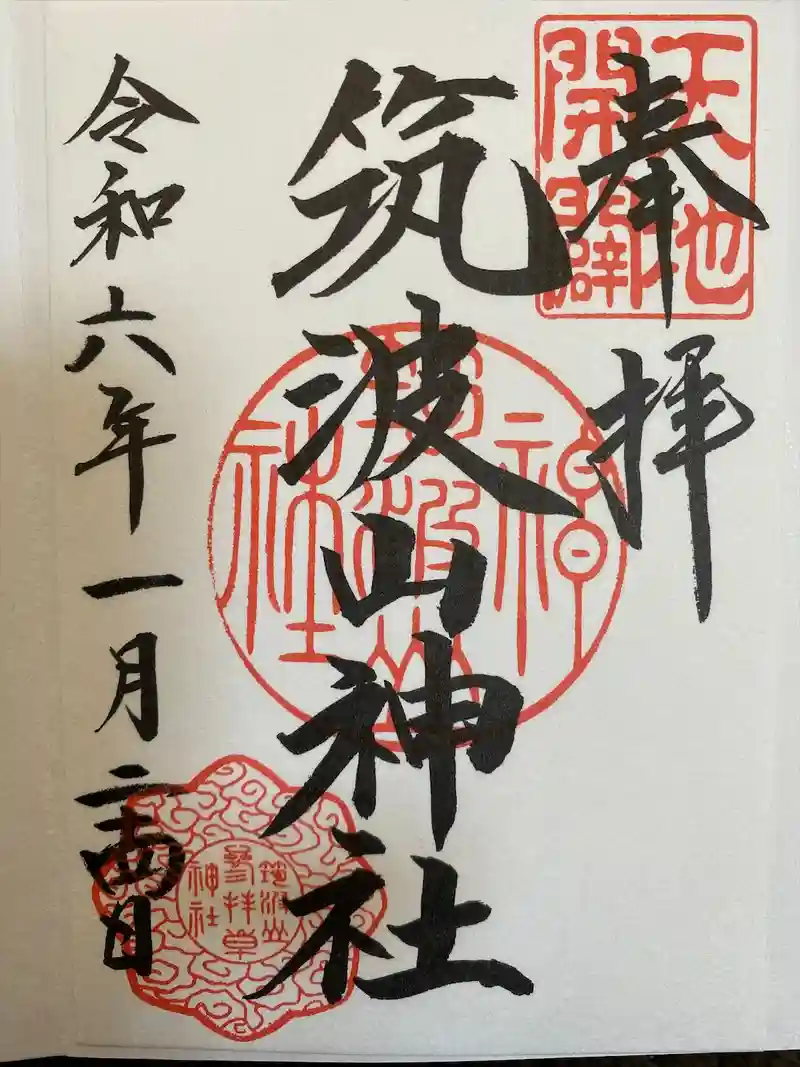 奉拝
天地
開闢
筑波山神社
神
筑波山
社
令和六年一月二十四日
筑波山
參拝章
神社